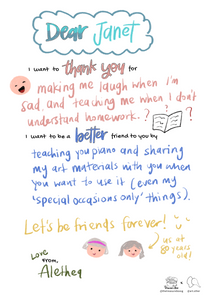 Dear Janet
I want to thank you for
making me laugh when I'm
sad, and teaching me when I don't
understand homework.
? ?
I want to be a better friend to you by
teaching you piano and sharing
my art materials with you when
you want to use it (even my
'special occasions only' things).
Let's be friends forever!
us at
80 years
old!
Love
from,
Alethea